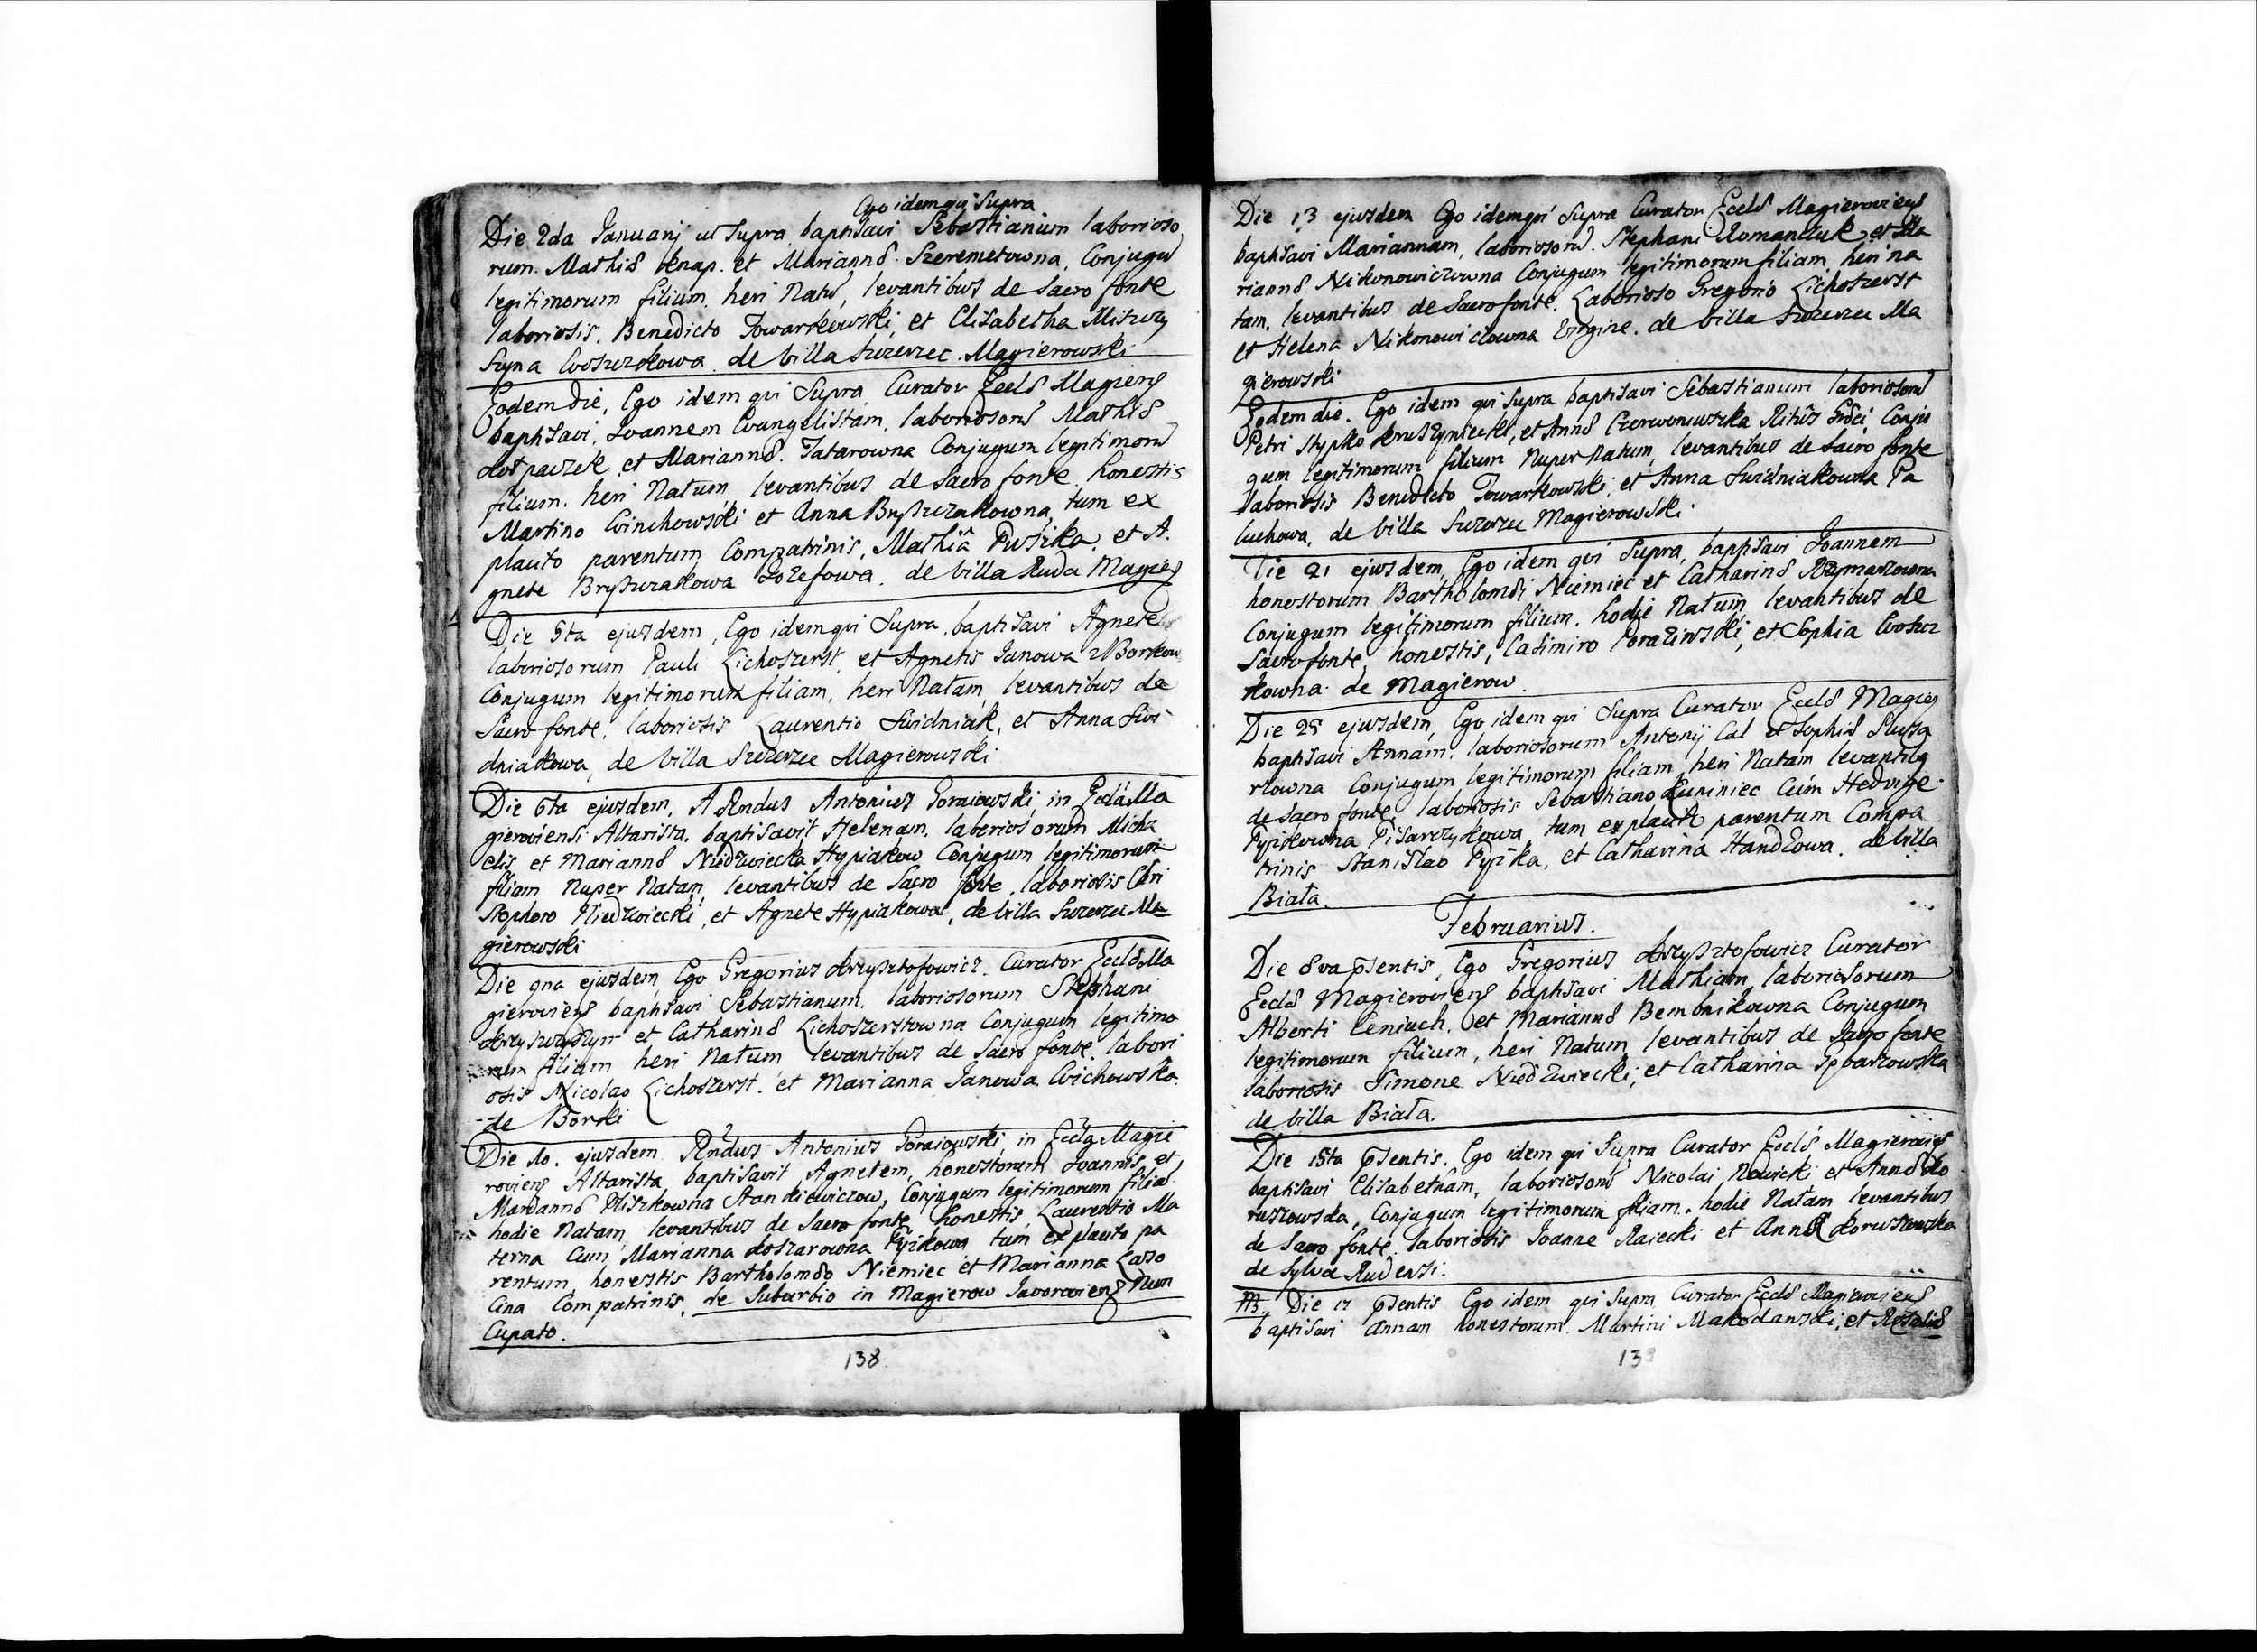 Ego idem qui Supra
Die 2da Januarij ut Supra baptisavi Sebastianum laborioso
rum Mathiæ Knap. et Mariannæ Szeremetowna, Conjugu
legitimorum filium heri Natu, levantibus de Sacro fonte
laboriosis. Benedicto Towarkowski, et Elisabetha
de villa Szczerzec Magierowski
Eodem die, Ego idem qui Supra Curator Eccłæ Magierỹ
baptisavi, Joannem Evangelistam, laboriosorũ Mathiæ
et Mariannæ Tatarowna Conjugum legitimorũ
filium. heri Natum levantibus de Sacro fonte honestis
Martino et Anna Bryszczakowna, tum ex
placito parentum Compatrinis, Mathiâ Puszka. et A.
gnete Bryszczakowa Jozefowa. de villa Ruda Magier
Die 5ta ejusdem, Ego idem qui Supra baptisavi Agnete
laboriosorum Pauli Lichoszerst, et Agnetis Janowa
Conjugum legitimorum filiam, heri Natam, levantibus de
Sacro fonte, laboriosis Laurentio Swidniak, et Anna Swi
dniakowa, de villa Szczerzec Magierowski
Die 6ta ejusdem, A Rndus Antonius Goraiowski in Eccła Ma
gieroviensi Altarista, baptisavit Helenam, laboriosorum Micha
elis et Mariannæ Niedzwiecka Hypiakow Conjugum legitimorum
filiam Nuper Natam, levantibus de Sacro fonte, laboriosis Chri
stophoro Niedzwiecki, et Agnete Hypiakowa, de villa Szczerzec Ma
gierowski
Die 9na ejusdem, Ego Gregorius Krzysztofowicz. Curator Eccłæ Ma
gierovienỹ baptisavi Sebastianum laboriosorum Stephani
et Catharinæ Lichoszerstowna Conjugum legitimo
rum filium heri Natum levantibus de Sacro fonte labori
osis Nicolao Lichoszerst. et Marianna Janowa Wichowska
de Borki
Die 10. ejusdem Rndus Antonius Goraiowski in Eccła Magie
rovienỹ Altarista, baptisavit Agnetem, honestorum Joannis et
Mariannæ Stankiewiczow, Conjugum legitimorum filia
hodie Natam, levantibus de Sacro fonte, honestis Laurentio Ma
terna Cum Marianna Koszarowna Pyzikowa tum ex placito pa
rentum, honestis Bartholomæo Niemiec et Marianna
Compatrinis, de Suburbio in Magierow Javorovienỹ Nun
Cupato.
138
Die 13 ejusdem Ego idem qui Supra Curator Eccłæ Magierovienỹ
baptisavi Mariannam, laboriosorũ. Stephani Romanczuk et Ma
riannæ Nikonowiczowna Conjugum legitimorum filiam heri na
tam, levantibus de Sacro fonte. Laborioso Gregorio Lichoszerst
et Helena Nikonowiczowna Virgine. de villa Szczerzec Ma
gierowski
Eodem die. Ego idem qui Supra baptisavi Sebastianum laboriosorũ
Petri Stypko et Annæ Ritûs Conju
gum legitimorum filium Nuper Natum levantibus de Sacro fonte
laboriosis Benedicto Towarkowski, et Anna Swidniakowna Pa
luchowa, de villa Szczerzec Magierowski.
Die 21 ejusdem Ego idem qui Supra, baptisavi Joannem
honestorum Bartholomæi Niemiec et Catharinæ
Conjugum legitimorum filium. hodie Natum, levantibus de
Sacro fonte, honestis, Casimiro et Sophia Woszcz
kowna de Magierow.
Die 25 ejusdem, Ego idem qui Supra Curator Eccłæ Magier
baptisavi Annam. laboriosorum Antonij Cal et Sophiæ
Conjugum legitimorum filiam heri Natam levantibq
de Sacro fonte laboriosis Sebastiano Cum Hedvige
Pyzikowna Pisarczykowa tum ex placito parentum Compa
trinis Stanislao Pyzika, et Catharina Handzowa. de villa
Biała.
Februarius.
Die 8va p̃sentis, Ego Gregorius Krzysztofowicz Curator
Eccłæ Magierovienỹ baptisavi Mathiam, laboriosorum
Alberti Ceniuch. et Mariannæ Bembnikowna Conjugum
legitimorum filium, heri Natum levantibus de Sacro fonte
laboriosis Simone Niedzwiecki, et Catharina Gębarzowska
de villa Biała.
Die 15ta p̃sentis. Ego idem qui Supra Curator Eccłæ Magierovienỹ
baptisavi Elisabetham, laboriosorũ Nicolai Nowicki et Annæ Ko
ruszowska, Conjugum legitimorum filiam. hodie Natam levantibus
de Sacro fonte. laboriosis Joanne Raiecki et Anna
de Sylva Rudensi.
Die 17 p̃sentis Ego idem qui Supra Curator Eccłæ Magierovienỹ
baptisavi Annam honestorum. Martini Makodanski, et Rosaliæ